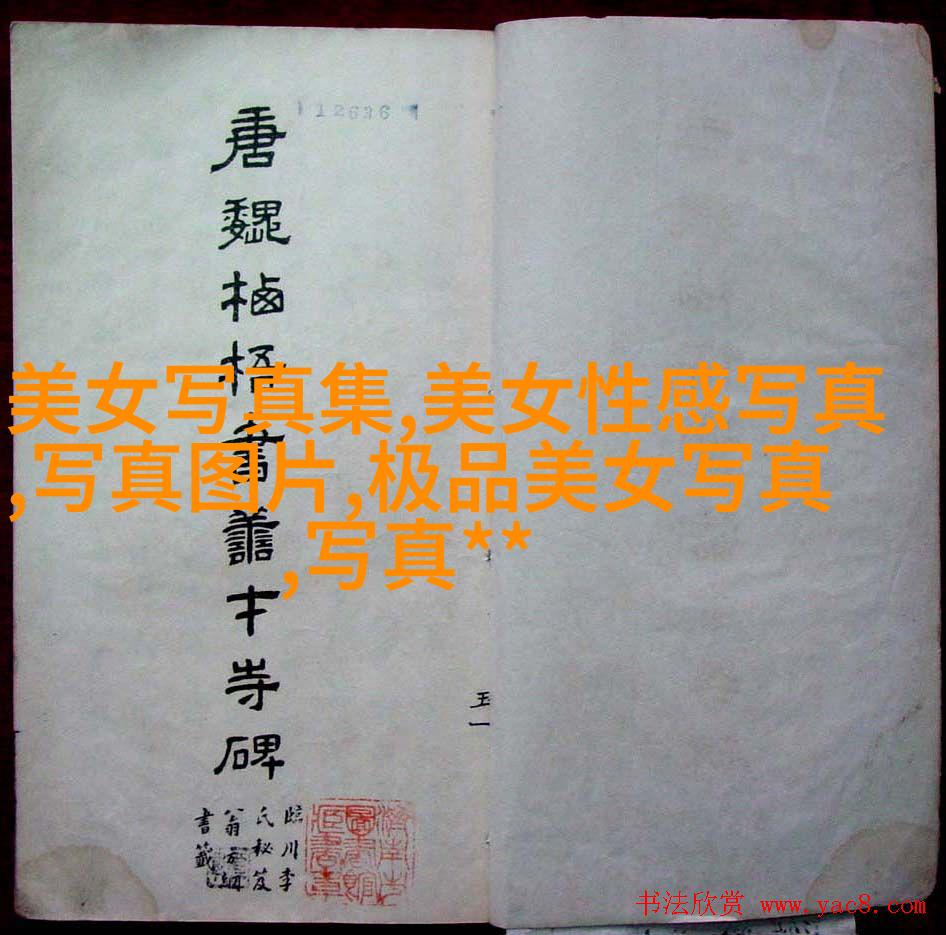 12636
唐魏栖梧書善才寺碑
美女写真集,美女性感写真
,写真图片,极品美女写真
,写真**
臨川李
氏秘笈
翁方綱
書籤
玉一
书法欣赏 www.yac8.com